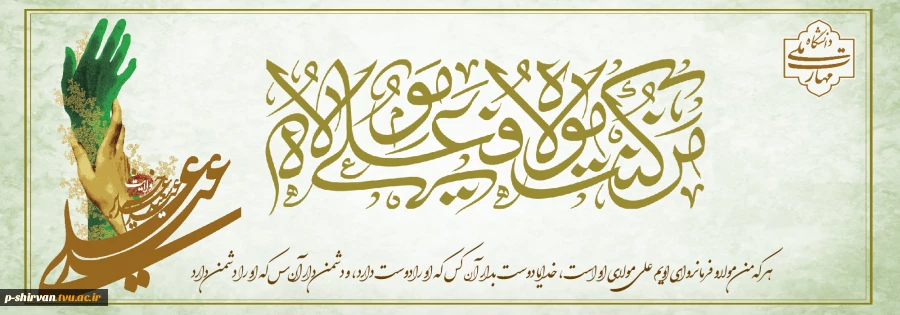 دانشگاه
ملی
مهارت
من کنت مولاه فعلی مولاه
علی
هر که من مولا و فرمانروای اویم علی مولای او است، خدایا دوست بدار آن کس که او را دوست دارد، و دشمن دار آن کس که او را دشمن دارد
p-shirvan.tvu.ac.ir